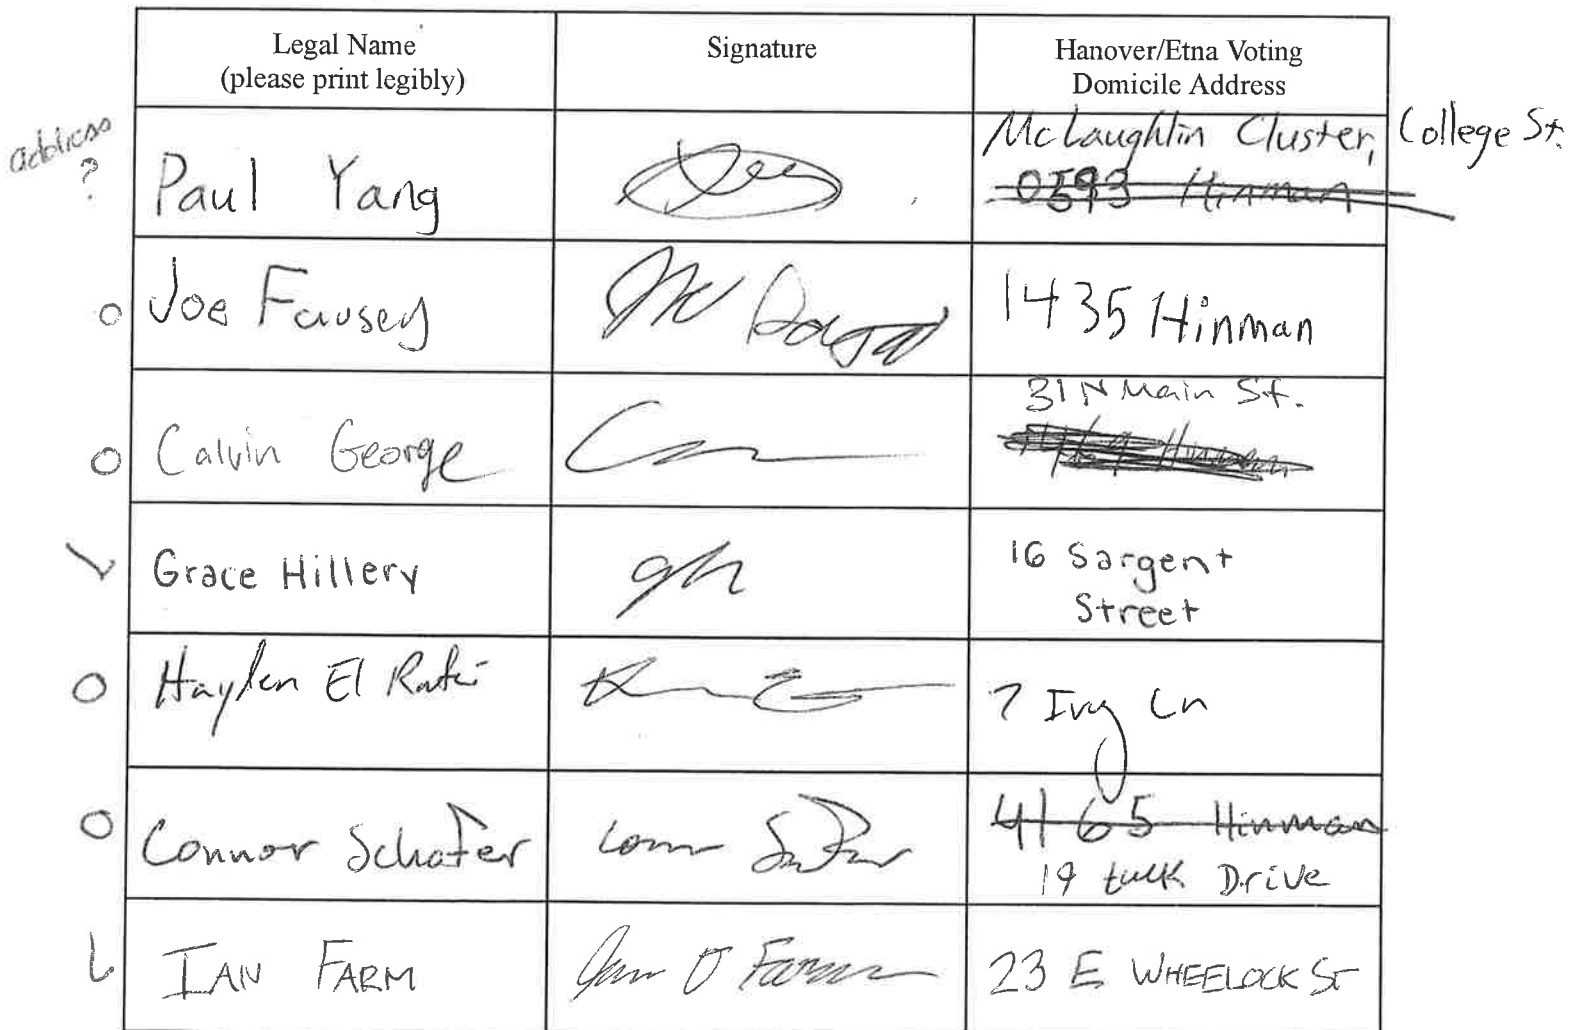 Legal Name
(please print legibly)
Signature
Hanover/Etna Voting
Domicile Address
address
?
Paul Yang
McLaughlin Cluster, College St.
0593 Hinman
Joe Fausey
1435 Hinman
Calvin George
31 N Main St.
Hinman
Grace Hillery
gh
16 Sargent
Street
Haylen El Rafii
7 Ivy Ln
Connor Schafer
4165 Hinman
19 tuck Drive
IAN FARM
23 E WHEELOCK ST